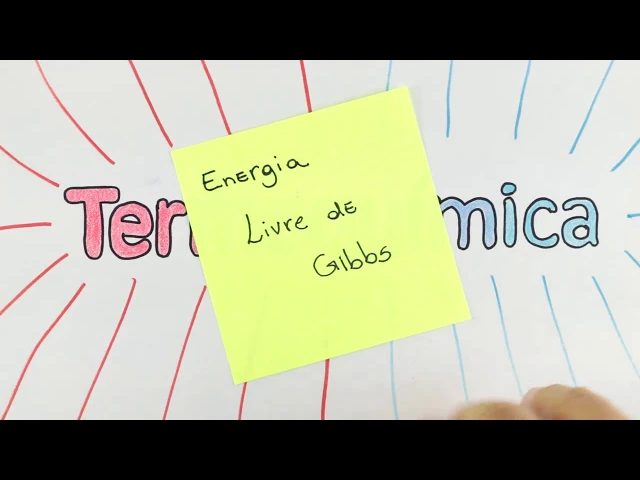 Energia
Livre de
Gibbs
Ter
mica